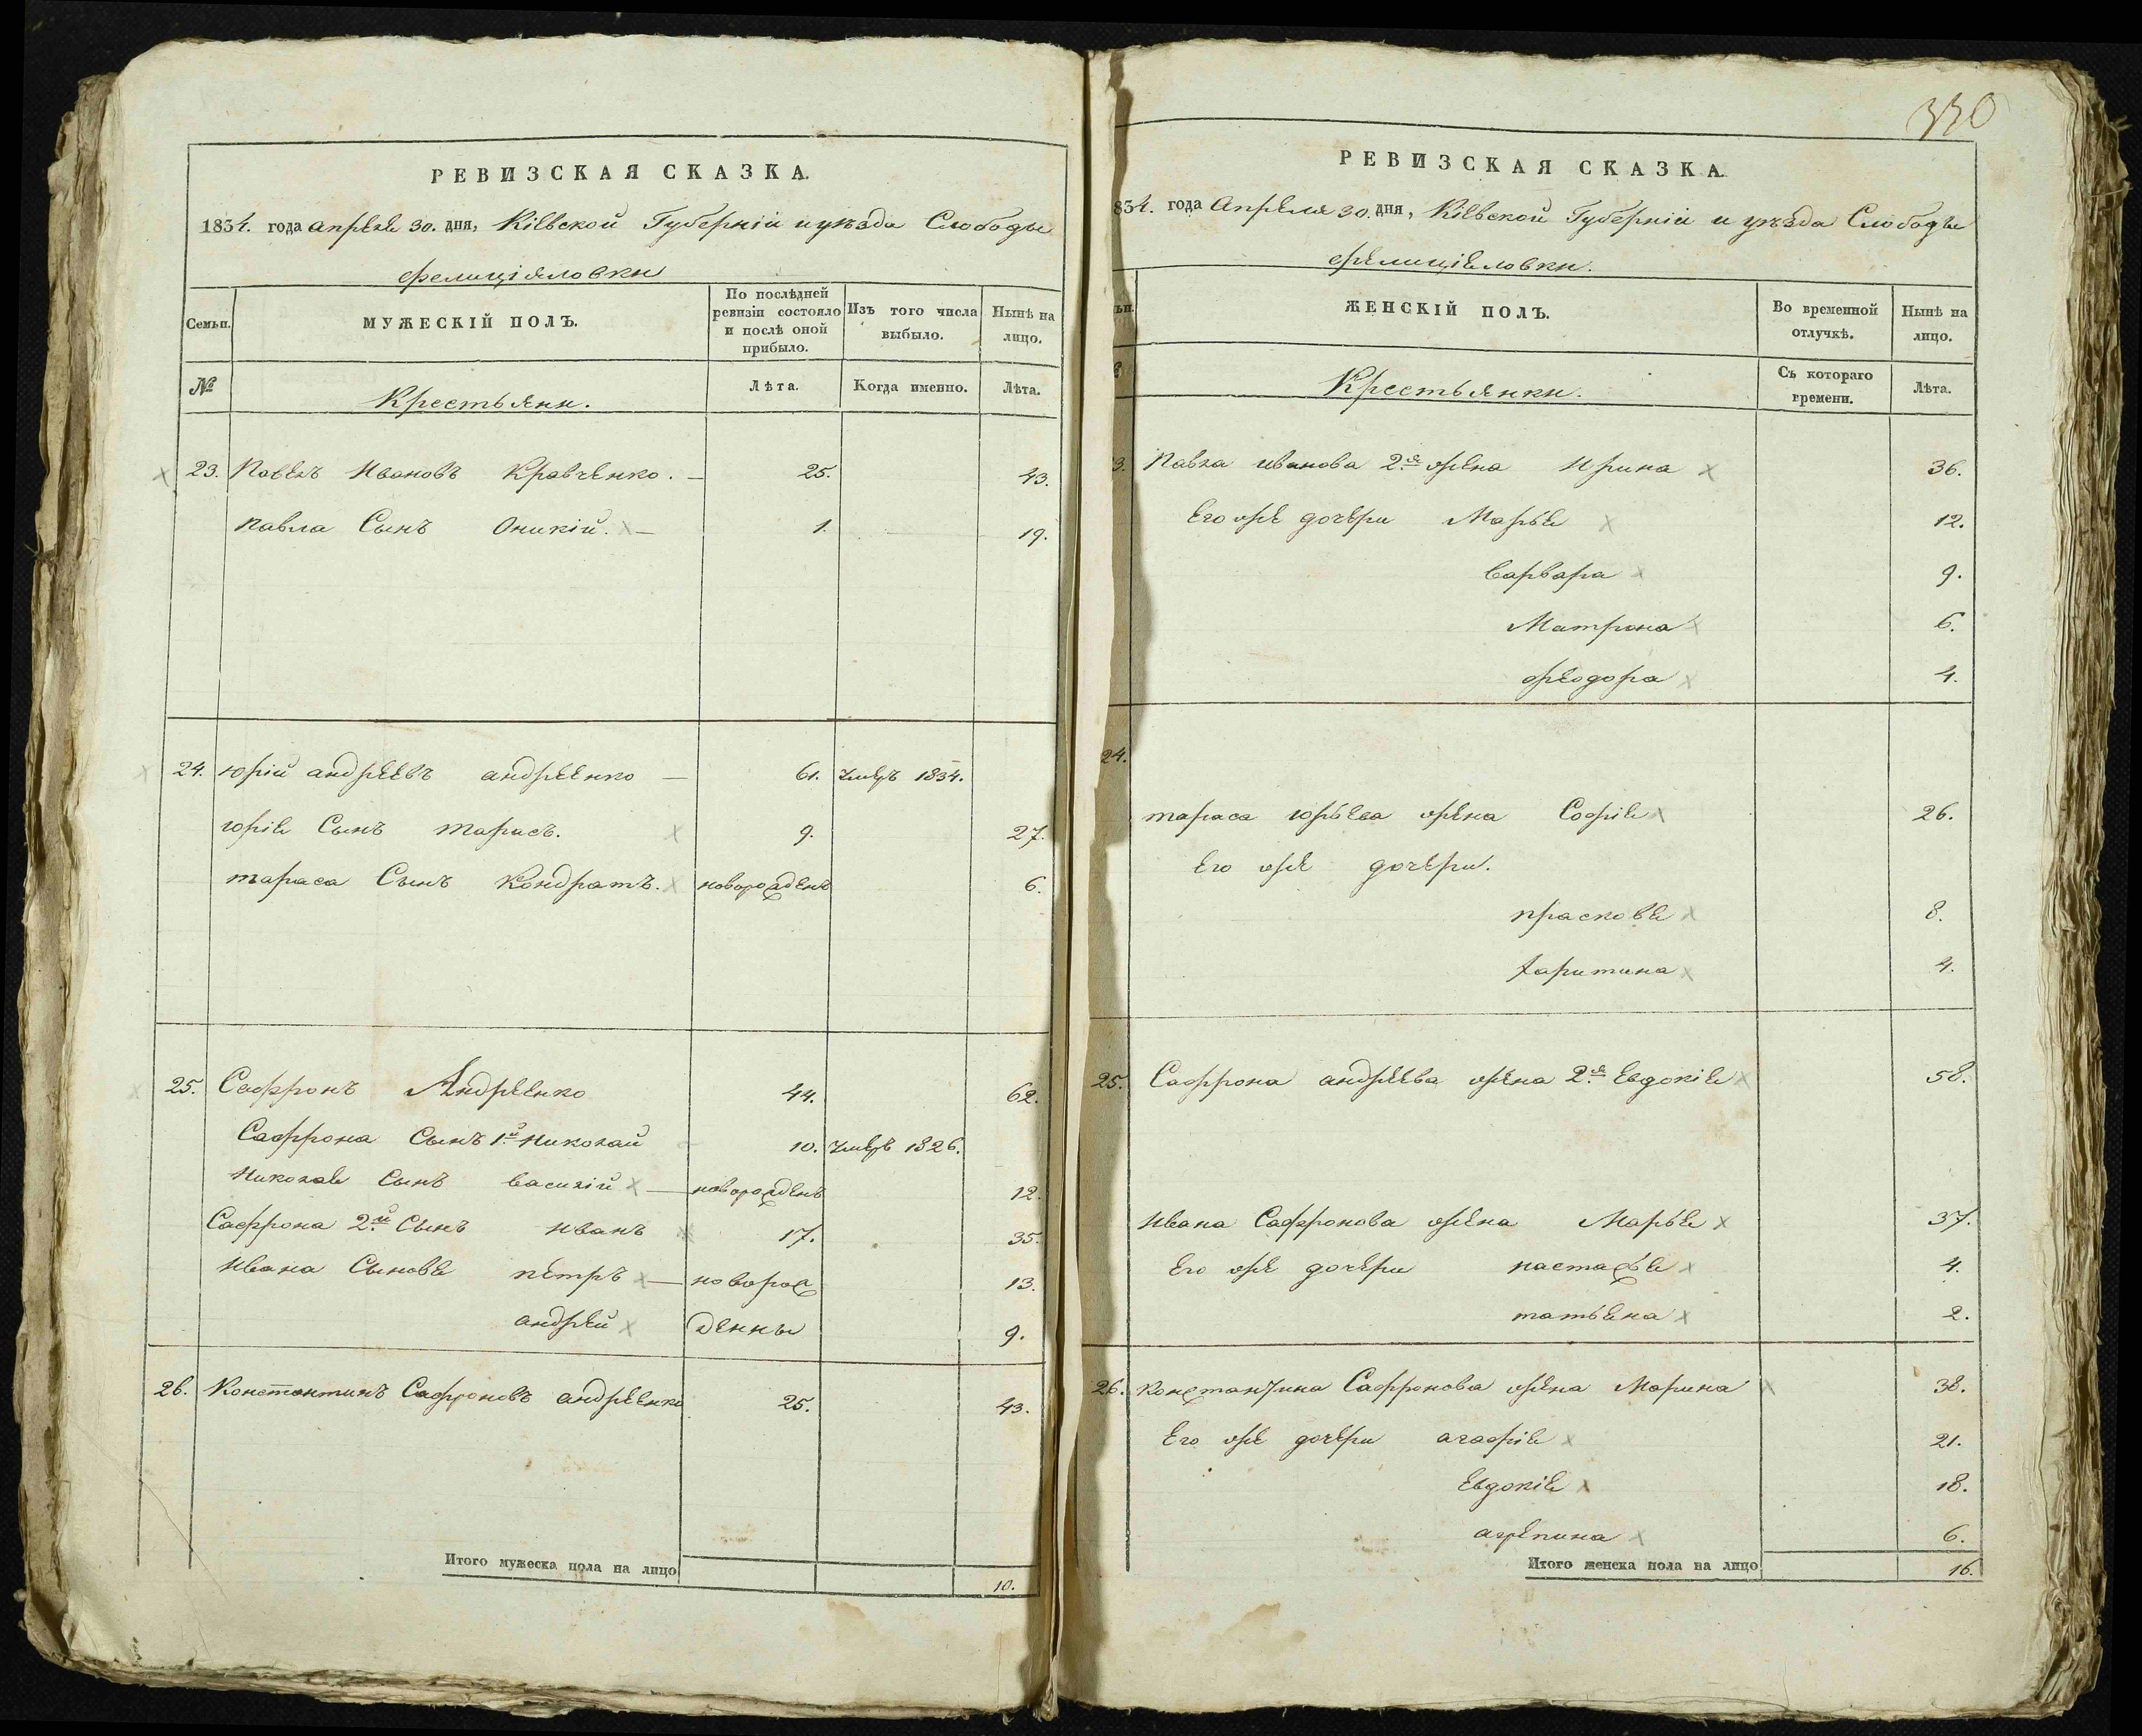 РЕВИЗСКАЯ СКАЗКА.
1834. года апреля 30. дня, Кіевской Губерніи и уѣзда Слободы
Фелиціяловки
Семьи. МУЖЕСКІЙ ПОЛЪ. По послѣдней ревизіи состояло и послѣ оной прибыло. Изъ того числа выбыло. Нынѣ на лицо.
№ Крестьяни. Лѣта. Когда именно. Лѣта.
23. Павелъ Ивановъ Кравченко. 25. 43.
Павла Сынъ Оникій. 1. 19.
24. Юрій андреевъ андреенко 61. умеръ 1834.
юрія Сынъ тарасъ. 9. 27.
тараса Сынъ Кондратъ. новорожденъ 6.
25. Сафронъ Андреенко 44. 62.
Сафрона Сынъ 1й Николай 10. умеръ 1826.
Николая Сынъ василій новорожденъ 12.
Сафрона 2й Сынъ иванъ 17. 35.
ивана Сыновя петръ новорож 13.
андрей денны 9.
26. Константинъ Сафроновъ андреенко 25. 43.
Итого мужеска пола на лицо 10.
330
РЕВИЗСКАЯ СКАЗКА
834. года Апреля 30. дня, Кіевской Губерніи и уѣзда Слободы
Фелиціяловки.
ьи. ЖЕНСКІЙ ПОЛЪ. Во временной отлучкѣ. Нынѣ на лицо.
Крестьянки. Съ котораго времени. Лѣта.
3. Павла иванова 2я жена Ирина 36.
Его же дочери Марья 12.
Варвара 9.
Матрона 6.
Феодора 4.
24.
тараса юрьева жена Софія 26.
Его же дочери.
прасковя 8.
харитина 4.
25. Сафрона андреева жена 2я Евдокія 58.
Ивана Сафронова жена Марья 37.
Его же дочери настасья 4.
татьяна 2.
26. Константина Сафронова жена Марина 38.
Его же дочери агафія 21.
Евдокія 18.
агрепина 6.
Итого женска пола на лицо 16.